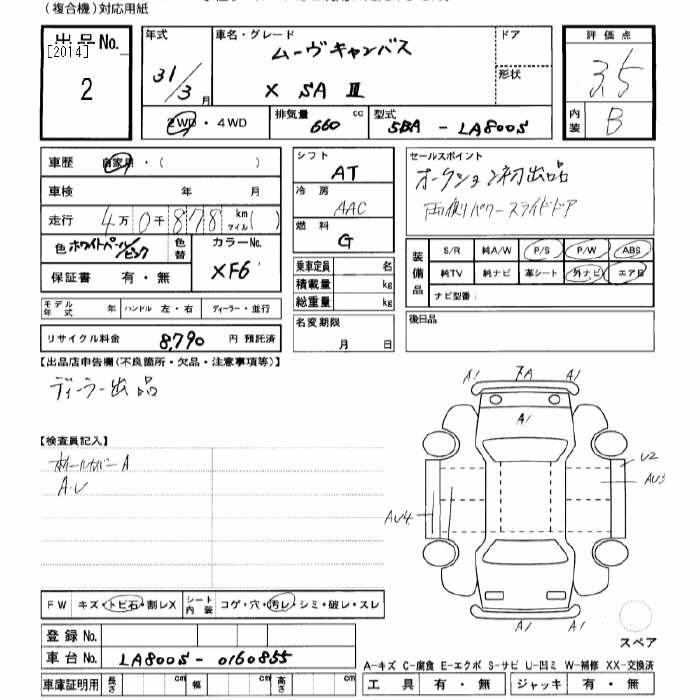 (複合機)対応用紙
出品No.
[2014]
2
年式
31/3月
車名・グレード
ムーヴキャンバス
X SA Ⅲ
ドア
形状
評価点
3.5
内装
B
2WD・4WD
排気量 660 cc
型式 5BA - LA800S
車歴 自家用・( )
車検 年 月
走行 4万0千878 km マイル( )
色 ホワイトパール/ピンク
色替
カラーNo.
XF6
保証書 有・無
モデル年式 年 ハンドル 左・右 ディーラー・並行
リサイクル料金 8,790 円 預託済
シフト
AT
冷房
AAC
燃料
G
乗車定員 名
積載量 kg
総重量 kg
名変期限
月 日
セールスポイント
オークション初出品
両側パワースライドドア
装備品
S/R 純A/W P/S P/W ABS
純TV 純ナビ 革シート 外ナビ エアB
ナビ型番:
後日品
【出品店申告欄(不良箇所・欠品・注意事項等)】
ディーラー出品
【検査員記入】
ホイールカバーA
A・U
A1 A1
A1
U2
AU3
AU4
A1 A1
スペア
FW キズ・トビ石・割レX
シート内装 コゲ・穴・汚レ・シミ・破レ・スレ
登録No.
車台No. LA800S-0160855
車庫証明用 長さ cm 幅 cm 高さ cm
A-キズ C-腐食 E-エクボ S-サビ U-凹ミ W-補修 XX-交換済
工具 有・無 ジャッキ 有・無